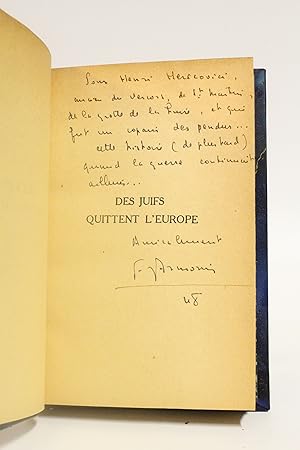 Pour Henri Herscovici,
ancien du Vercors, de St Martin,
de la grotte de la Luire, et qui
fut un copain des pendus...
cette histoire (de plus tard)
quand la guerre continuait
ailleurs...
DES JUIFS
QUITTENT L'EUROPE
Amicalement
48